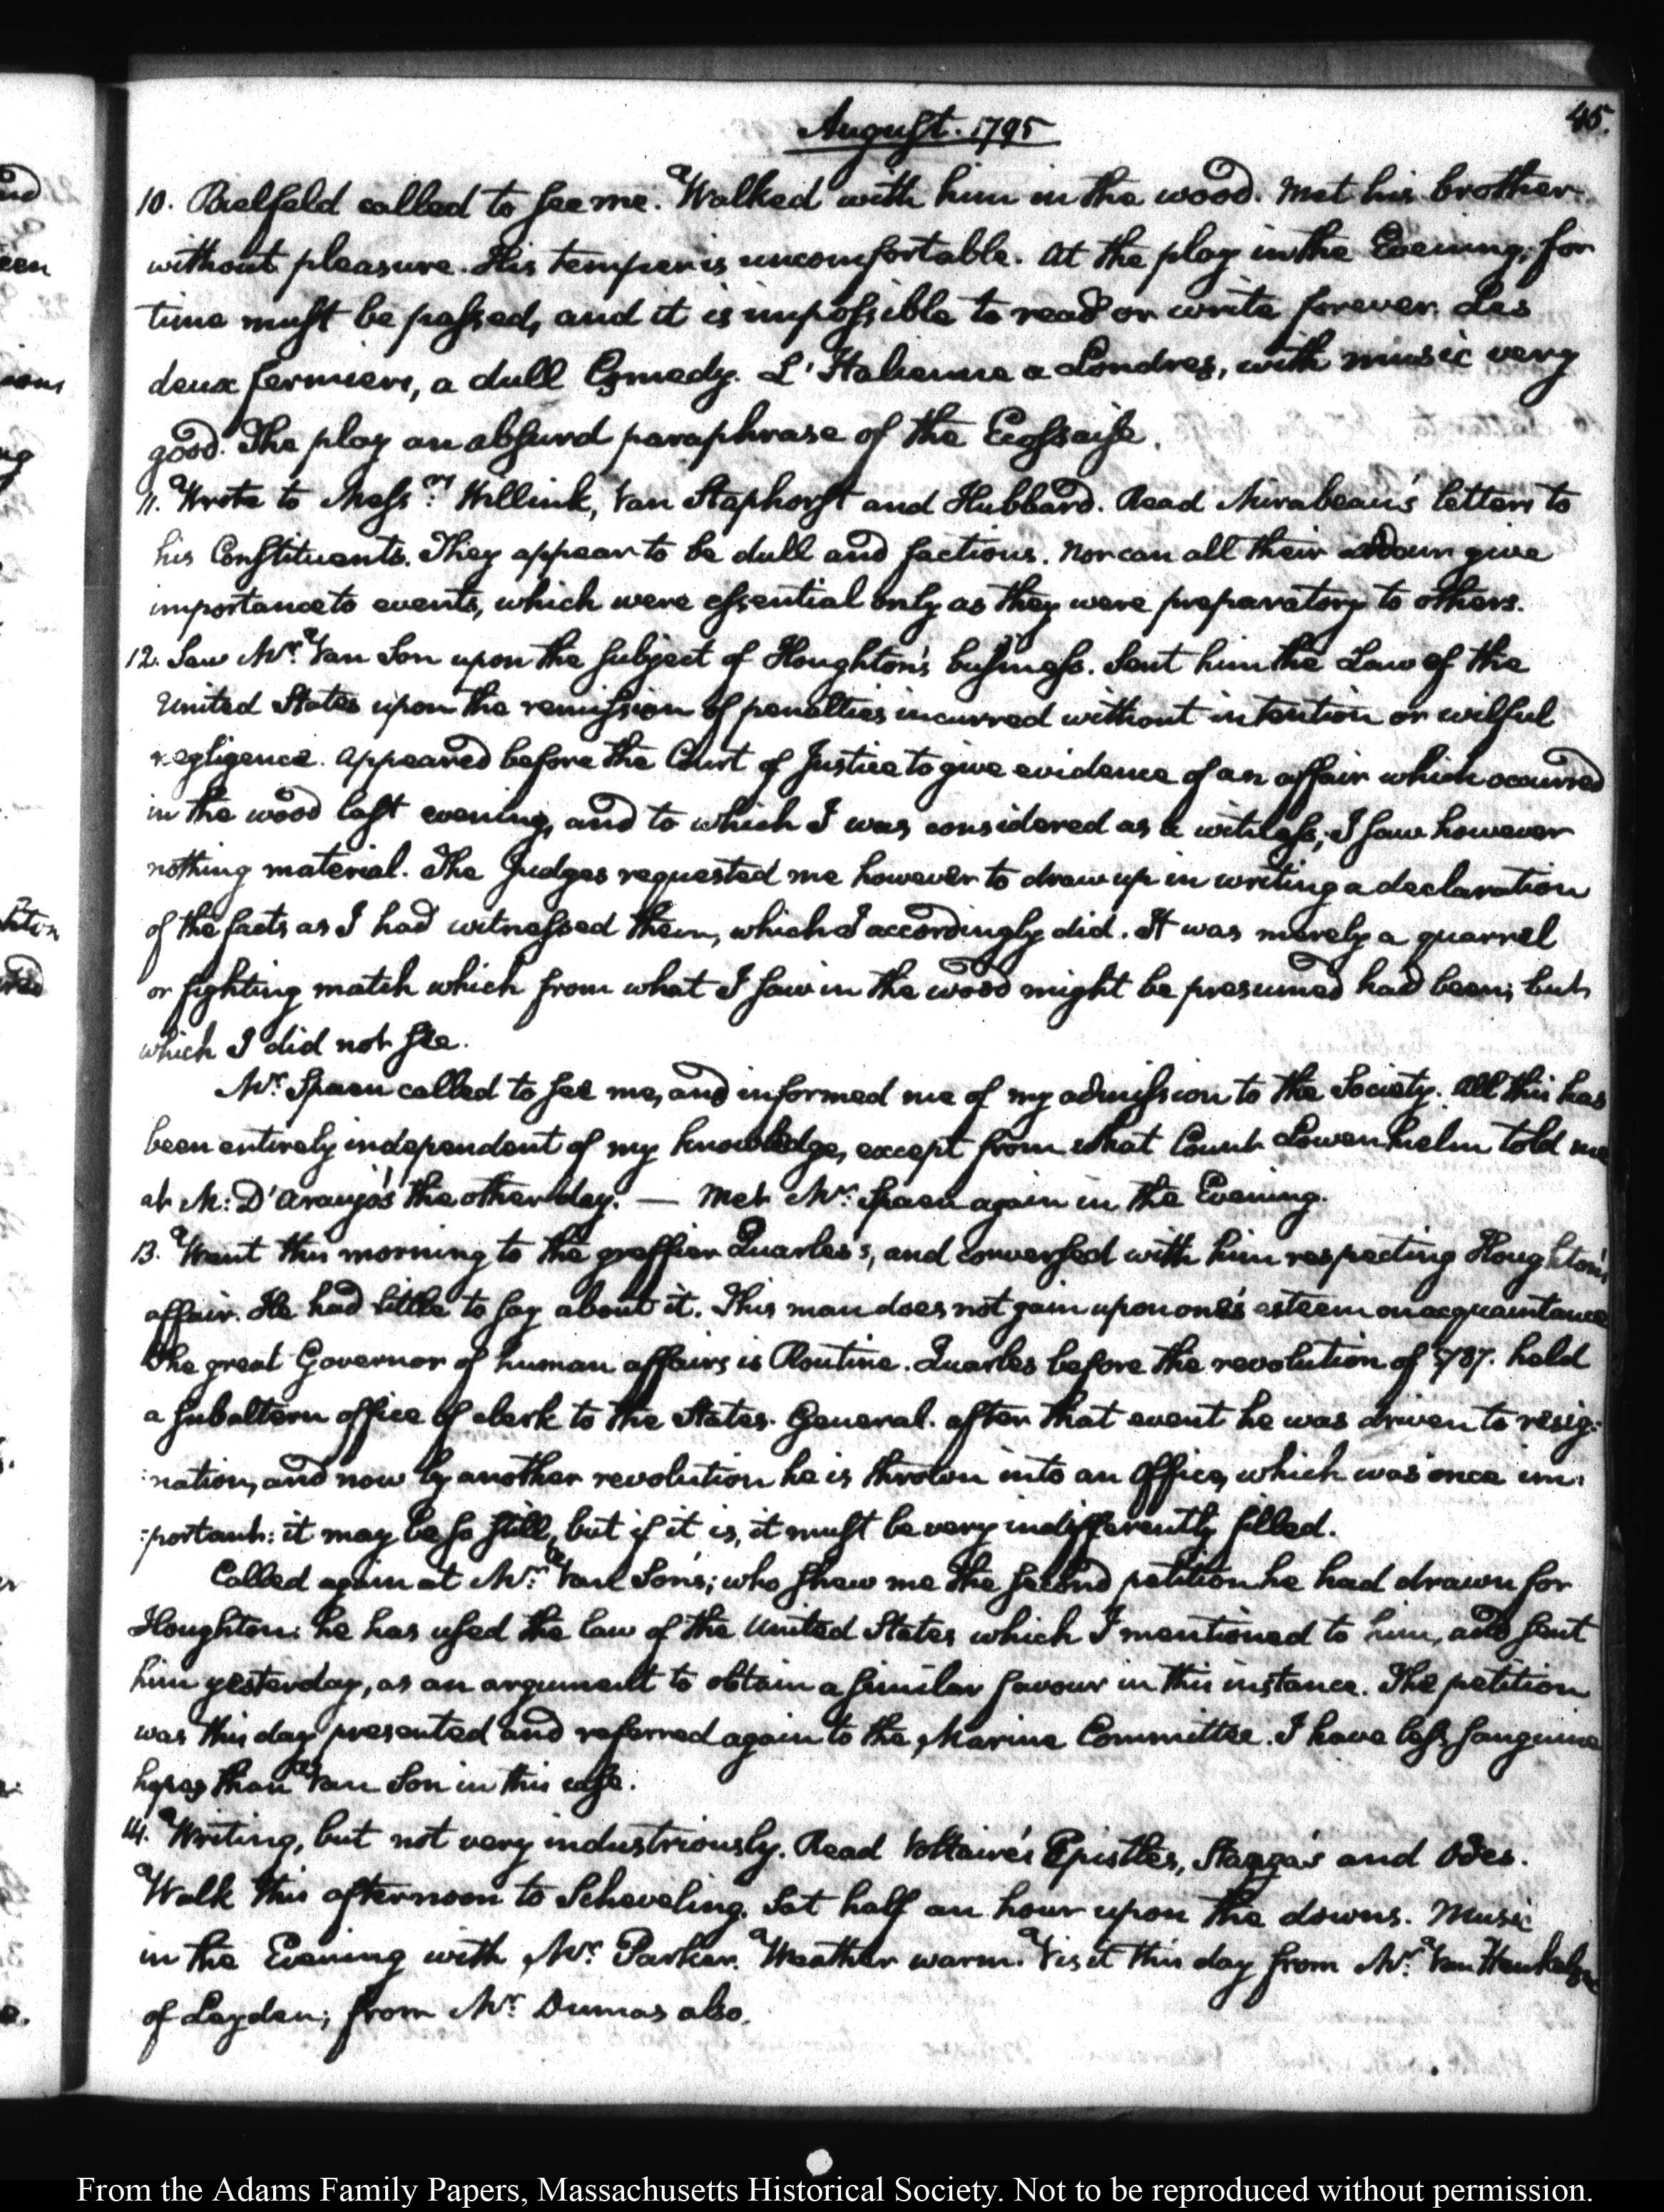 August. 1795
45.
10. Bielfeld called to see me. Walked with him in the wood. Met his brother
without pleasure. His temper is uncomfortable. At the play in the Evening; for
time must be passed, and it is impossible to read or write forever. Les
deux fermiers, a dull Comedy. L'Italienne a Londres, with music very
good. The play an absurd paraphrase of the Ecossaise.
11. Wrote to Mess.rs Willink, Van Staphorst and Hubbard. Read Mirabeau's letters to
his Constituents. They appear to be dull and factious. Nor can all their ardour give
importance to events, which were essential only as they were preparatory to others.
12. Saw Mr. Van Son upon the subject of Houghton's business. Sent him the Law of the
United States upon the remission of penalties incurred without intention or wilful
negligence. Appeared before the Court of Justice to give evidence of an affair which occurred
in the wood last evening, and to which I was considered as a witness; I saw however
nothing material. The Judges requested me however to draw up in writing a declaration
of the facts as I had witnessed them, which I accordingly did. It was merely a quarrel
or fighting match which from what I saw in the wood might be presumed had been; but
which I did not see.
Mr. Spaen called to see me, and informed me of my admission to the Society. All this has
been entirely independent of my knowledge, except from what Count Lowenhielm told me
at M: D'Araujo's the other day. — Met Mr. Spaen again in the Evening.
13. Went this morning to the greffier Quarles's, and conversed with him respecting Houghton's
affair. He had little to say about it. This man does not gain upon one's esteem on acquaintance
The great Governor of human affairs is Routine. Quarles before the revolution of 1787. held
a subaltern office of clerk to the States-General. after that event he was driven to resig:
:nation, and now by another revolution he is thrown into an Office, which was once im:
:portant: it may be so still, but if it is, it must be very indifferently filled.
Called again at Mr. Van Son's; who shew me the second petition he had drawn for
Houghton: he has used the law of the United States which I mentioned to him, and sent
him yesterday, as an argument to obtain a similar favour in this instance. The petition
was this day presented and referred again to the Marine Committee. I have less sanguine
hopes than Van Son in this case.
14. Writing, but not very industriously. Read Voltaire's Epistles, Stanza's and Odes.
Walk this afternoon to Scheveling. Sat half an hour upon the downs. Music
in the Evening with Mr. Parker. Weather warm. Visit this day from Mr. Van
of Leyden; from Mr. Dumas also.
From the Adams Family Papers, Massachusetts Historical Society. Not to be reproduced without permission.